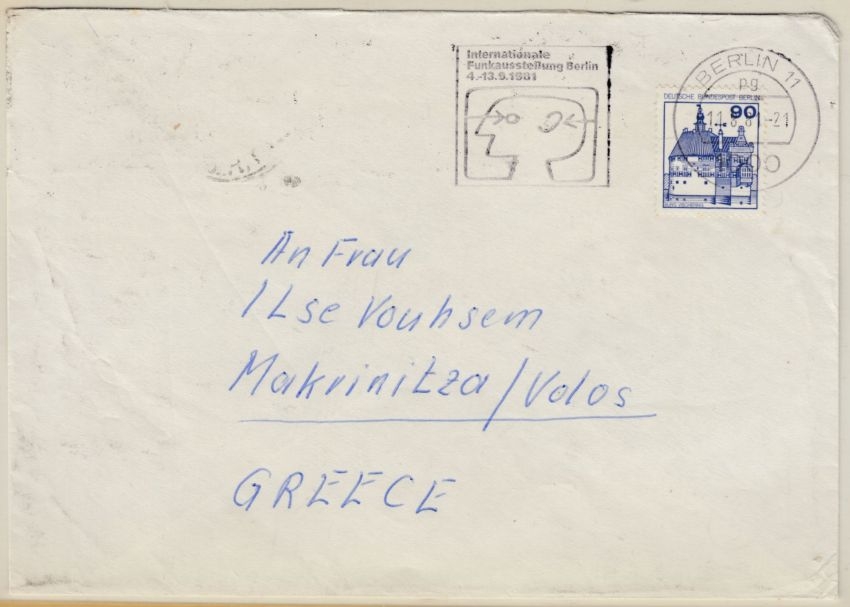 Internationale
Funkausstellung Berlin
4.-13.9.1981
BERLIN 11
pg
DEUTSCHE BUNDESPOST BERLIN
90
-21
1000
An Frau
Ilse Vouhsem
Makrinitza/Volos
GREECE